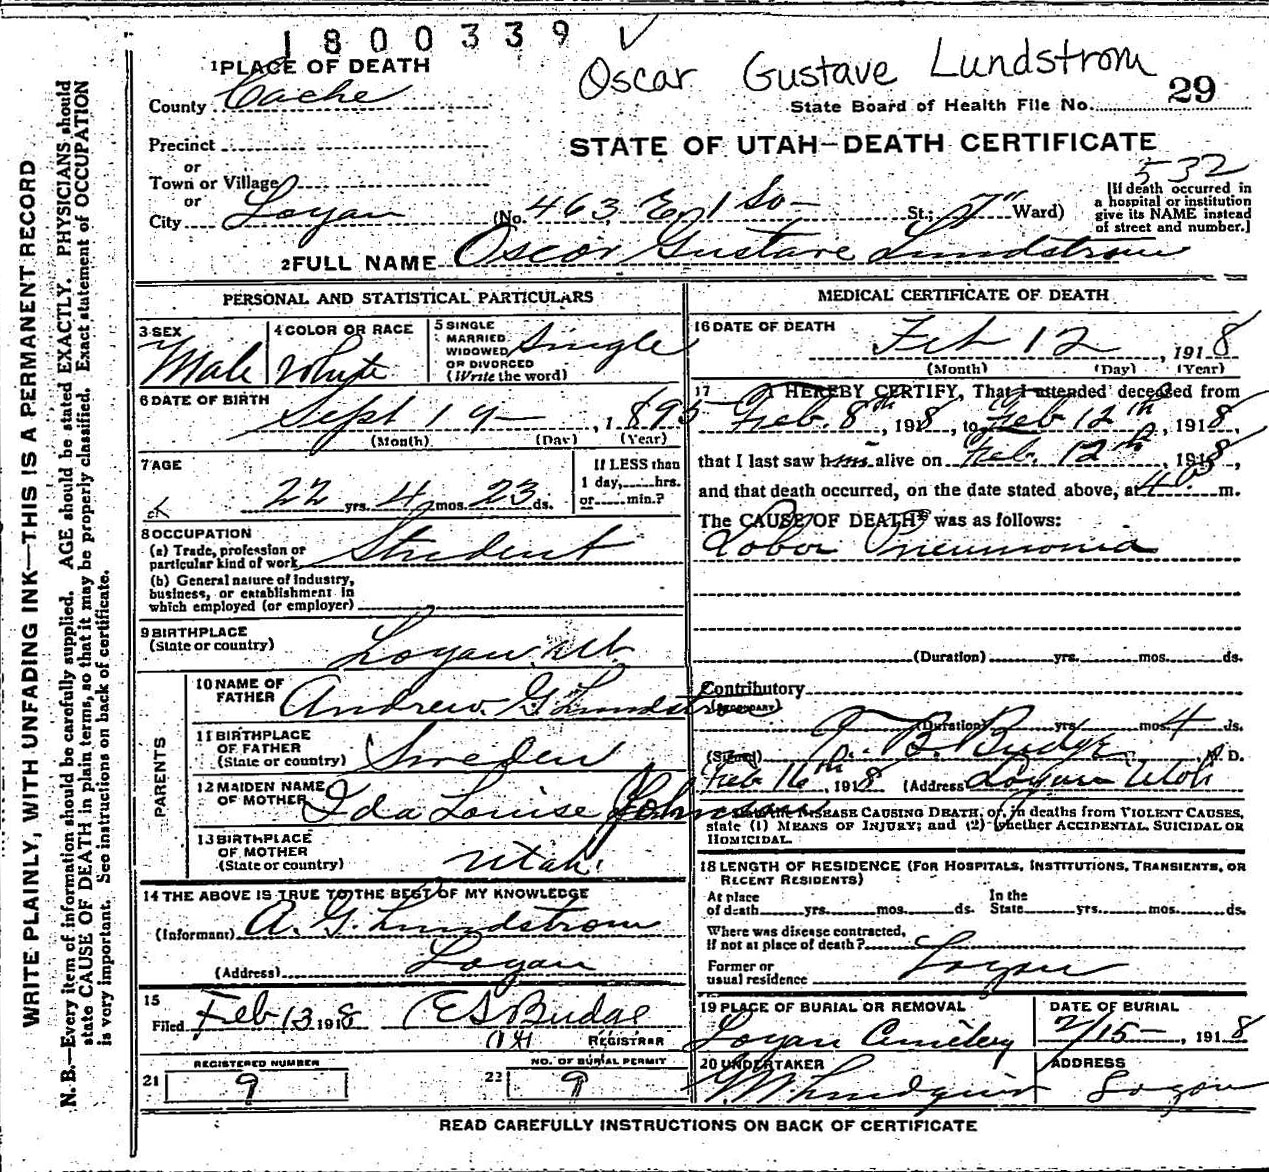 1800339 ✓
Oscar Gustave Lundstrom
1 PLACE OF DEATH
County Cache
State Board of Health File No. 29
Precinct
STATE OF UTAH—DEATH CERTIFICATE
532
or
Town or Village
or
City Logan (No. 463 E. 1 So- St.; 7" Ward)
[If death occurred in
a hospital or institution
give its NAME instead
of street and number.]
2 FULL NAME Oscar Gustave Lundstrom
PERSONAL AND STATISTICAL PARTICULARS
3 SEX Male
4 COLOR OR RACE White
5 SINGLE
MARRIED
WIDOWED
OR DIVORCED
(Write the word) Single
6 DATE OF BIRTH Sept 19- , 1895
(Month) (Day) (Year)
7 AGE
22 yrs. 4 mos. 23 ds.
If LESS than
1 day, hrs.
or min.?
8 OCCUPATION
(a) Trade, profession or
particular kind of work Student
(b) General nature of industry,
business, or establishment in
which employed (or employer)
9 BIRTHPLACE
(State or country) Logan. Ut
PARENTS
10 NAME OF
FATHER Andrew. G Lundstrom
11 BIRTHPLACE
OF FATHER
(State or country) Sweden
12 MAIDEN NAME
OF MOTHER Ida Louise Johnson
13 BIRTHPLACE
OF MOTHER
(State or country) Utah.
14 THE ABOVE IS TRUE TO THE BEST OF MY KNOWLEDGE
(Informant) A. G. Lundstrom
(Address) Logan
15
Filed Feb 13 1918 E S Budge
REGISTRAR
REGISTERED NUMBER
21 9
NO. OF BURIAL PERMIT
22 9
MEDICAL CERTIFICATE OF DEATH
16 DATE OF DEATH
Feb 12 , 1918
(Month) (Day) (Year)
17 I HEREBY CERTIFY, That I attended deceased from
Feb. 8th, 1918, to Feb 12th, 1918,
that I last saw him alive on Feb. 12th, 1918,
and that death occurred, on the date stated above, at m.
The CAUSE OF DEATH* was as follows:
Lobar Pneumonia
(Duration) yrs. mos. ds.
Contributory
(SECONDARY)
(Duration) yrs. mos. 4 ds.
(Signed) D. B. Budge M. D.
Feb 16th, 1918 (Address) Logan Utah
DISEASE CAUSING DEATH, or, in deaths from VIOLENT CAUSES,
state (1) MEANS OF INJURY; and (2) whether ACCIDENTAL, SUICIDAL OR
HOMICIDAL.
18 LENGTH OF RESIDENCE (FOR HOSPITALS, INSTITUTIONS, TRANSIENTS, OR
RECENT RESIDENTS)
At place
of death yrs. mos. ds.
In the
State yrs. mos. ds.
Where was disease contracted,
If not at place of death?
Former or
usual residence Logan
19 PLACE OF BURIAL OR REMOVAL
Logan Cemetery
DATE OF BURIAL
2/15- , 1918
20 UNDERTAKER
Lundquist
ADDRESS
Logan
READ CAREFULLY INSTRUCTIONS ON BACK OF CERTIFICATE
WRITE PLAINLY, WITH UNFADING INK—THIS IS A PERMANENT RECORD
N. B.—Every item of information should be carefully supplied. AGE should be stated EXACTLY. PHYSICIANS should
state CAUSE OF DEATH in plain terms, so that it may be properly classified. Exact statement of OCCUPATION
is very important. See instructions on back of certificate.